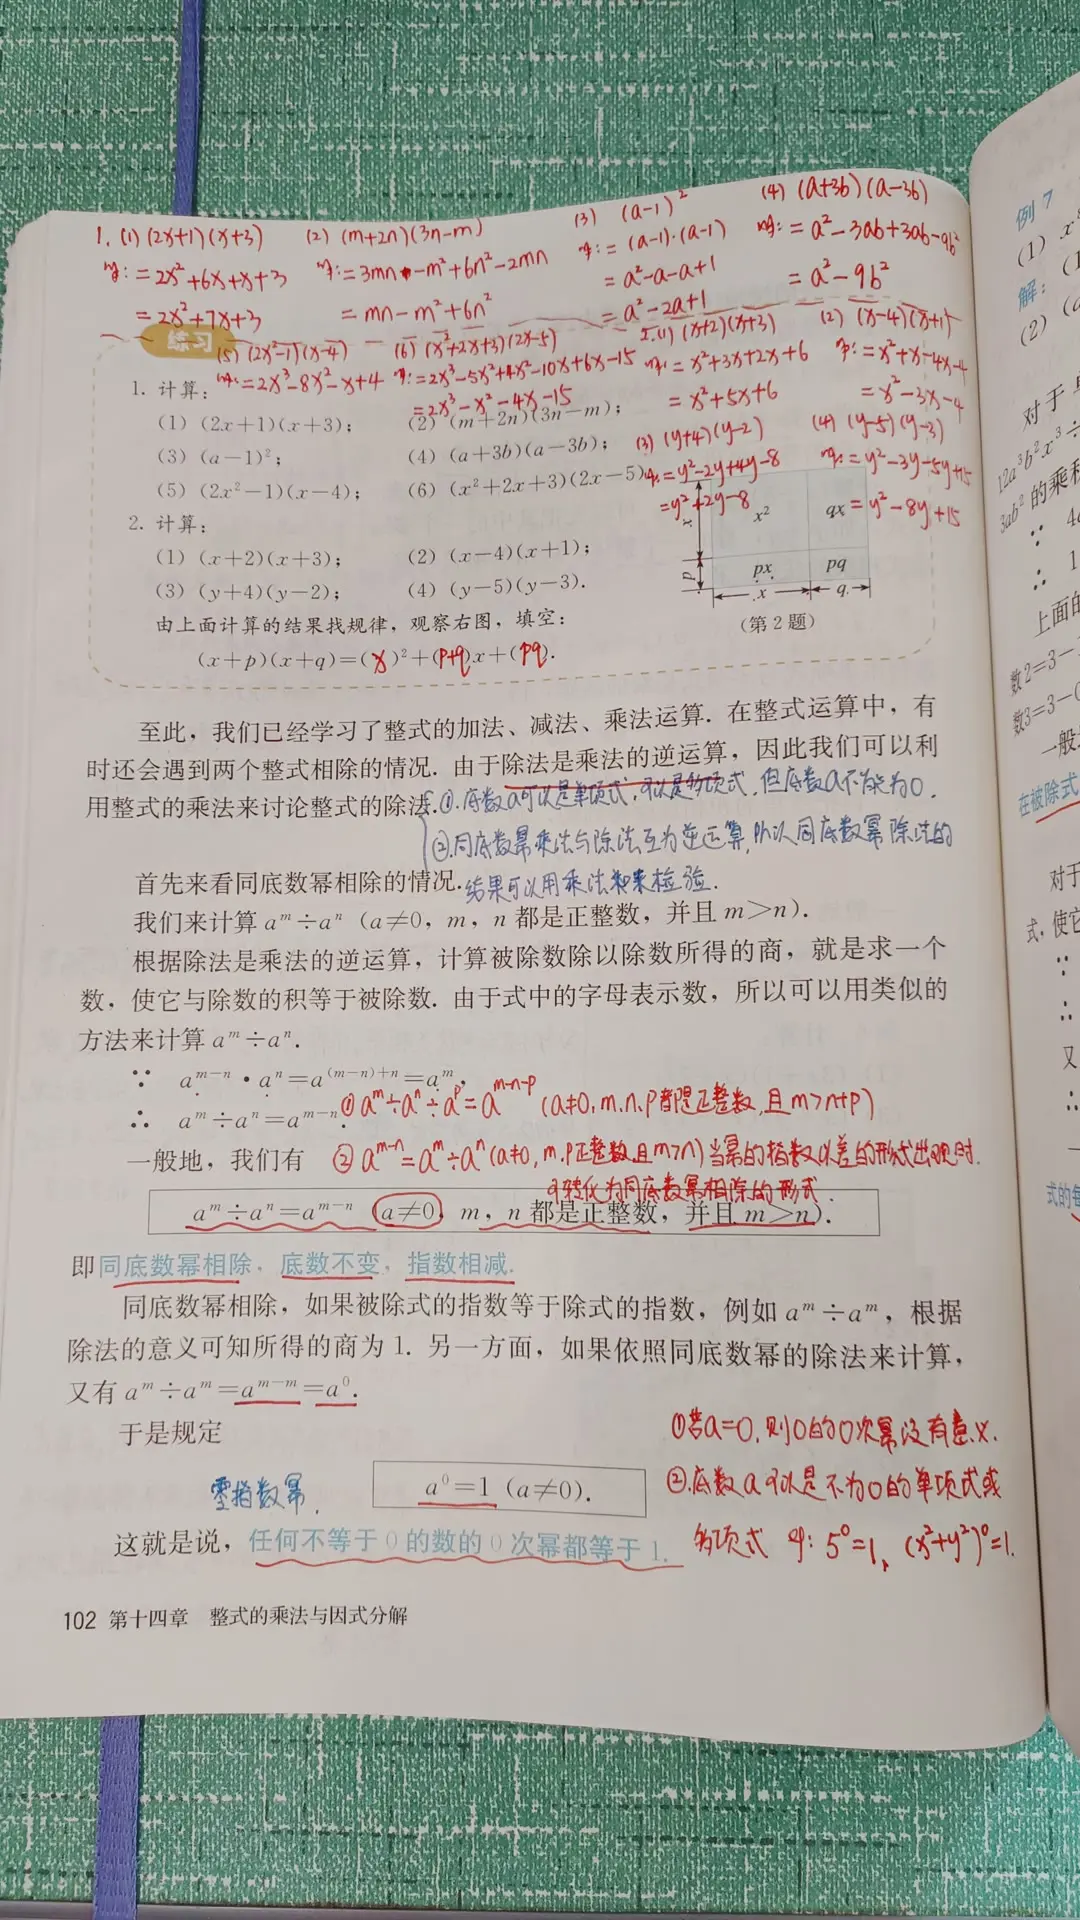 1. (1) (2x+1)(x+3) (2) (m+2n)(3n-m) (3) (a-1)² (4) (a+3b)(a-3b)
=2x²+6x+x+3 =3mn-m²+6n²-2mn =(a-1)·(a-1) =a²-3ab+3ab-9b²
=2x²+7x+3 =mn-m²+6n² =a²-a-a+1 =a²-9b²
=a²-2a+1
练习
(5) (2x²-1)(x-4) (6) (x²+2x+3)(2x-5) 2.(1) (x+2)(x+3) (2) (x-4)(x+1)
=2x³-8x²-x+4 =2x³-5x²+4x²-10x+6x-15 =x²+3x+2x+6 =x²+x-4x-4
=2x³-x²-4x-15 =x²+5x+6 =x²-3x-4
(3) (y+4)(y-2) (4) (y-5)(y-3)
=y²-2y+4y-8 =y²-3y-5y+15
=y²+2y-8 =y²-8y+15
1. 计算:
(1) (2x+1)(x+3); (2) (m+2n)(3n-m);
(3) (a-1)²; (4) (a+3b)(a-3b);
(5) (2x²-1)(x-4); (6) (x²+2x+3)(2x-5)
2. 计算:
(1) (x+2)(x+3); (2) (x-4)(x+1);
(3) (y+4)(y-2); (4) (y-5)(y-3).
x x² qx
p px pq
x q
(第2题)
由上面计算的结果找规律,观察右图,填空:
(x+p)(x+q)=(x)²+(p+q)x+(pq).
至此,我们已经学习了整式的加法、减法、乘法运算. 在整式运算中,有
时还会遇到两个整式相除的情况. 由于除法是乘法的逆运算,因此我们可以利
用整式的乘法来讨论整式的除法.
①.底数a可以是单项式,可以是多项式,但底数a不能为0.
②.同底数幂乘法与除法互为逆运算,所以同底数幂除法的
结果可以用乘法来检验.
首先来看同底数幂相除的情况.
我们来计算 aᵐ÷aⁿ (a≠0, m, n 都是正整数,并且 m>n).
根据除法是乘法的逆运算,计算被除数除以除数所得的商,就是求一个
数,使它与除数的积等于被除数. 由于式中的字母表示数,所以可以用类似的
方法来计算 aᵐ÷aⁿ.
∵ aᵐ⁻ⁿ·aⁿ=a⁽ᵐ⁻ⁿ⁾⁺ⁿ=aᵐ,
∴ aᵐ÷aⁿ=aᵐ⁻ⁿ.
① aᵐ÷aⁿ÷aᵖ=aᵐ⁻ⁿ⁻ᵖ (a≠0, m.n.p都是正整数,且m>n+p)
一般地,我们有
② aᵐ⁻ⁿ=aᵐ÷aⁿ(a≠0, m.p正整数且m>n)当幂的指数以差的形式出现时.
可转化为同底数幂相除的形式.
aᵐ÷aⁿ=aᵐ⁻ⁿ (a≠0, m, n 都是正整数,并且 m>n).
即同底数幂相除,底数不变,指数相减.
同底数幂相除,如果被除式的指数等于除式的指数,例如 aᵐ÷aᵐ,根据
除法的意义可知所得的商为 1. 另一方面,如果依照同底数幂的除法来计算,
又有 aᵐ÷aᵐ=aᵐ⁻ᵐ=a⁰.
于是规定
①若a=0,则0的0次幂没有意义.
零指数幂.
a⁰=1 (a≠0).
②.底数a可以是不为0的单项式或
多项式 如: 5⁰=1, (x²+y²)⁰=1.
这就是说,任何不等于0的数的0次幂都等于1.
102 第十四章 整式的乘法与因式分解
例7
(1)
解:
(2)
对于
12a³b²x³÷
3ab²的乘积
∵
∴
上面的
数2=3-
数3=3-
一般
在被除式
对于
式,使它
∵
∴
又
∴
式的每